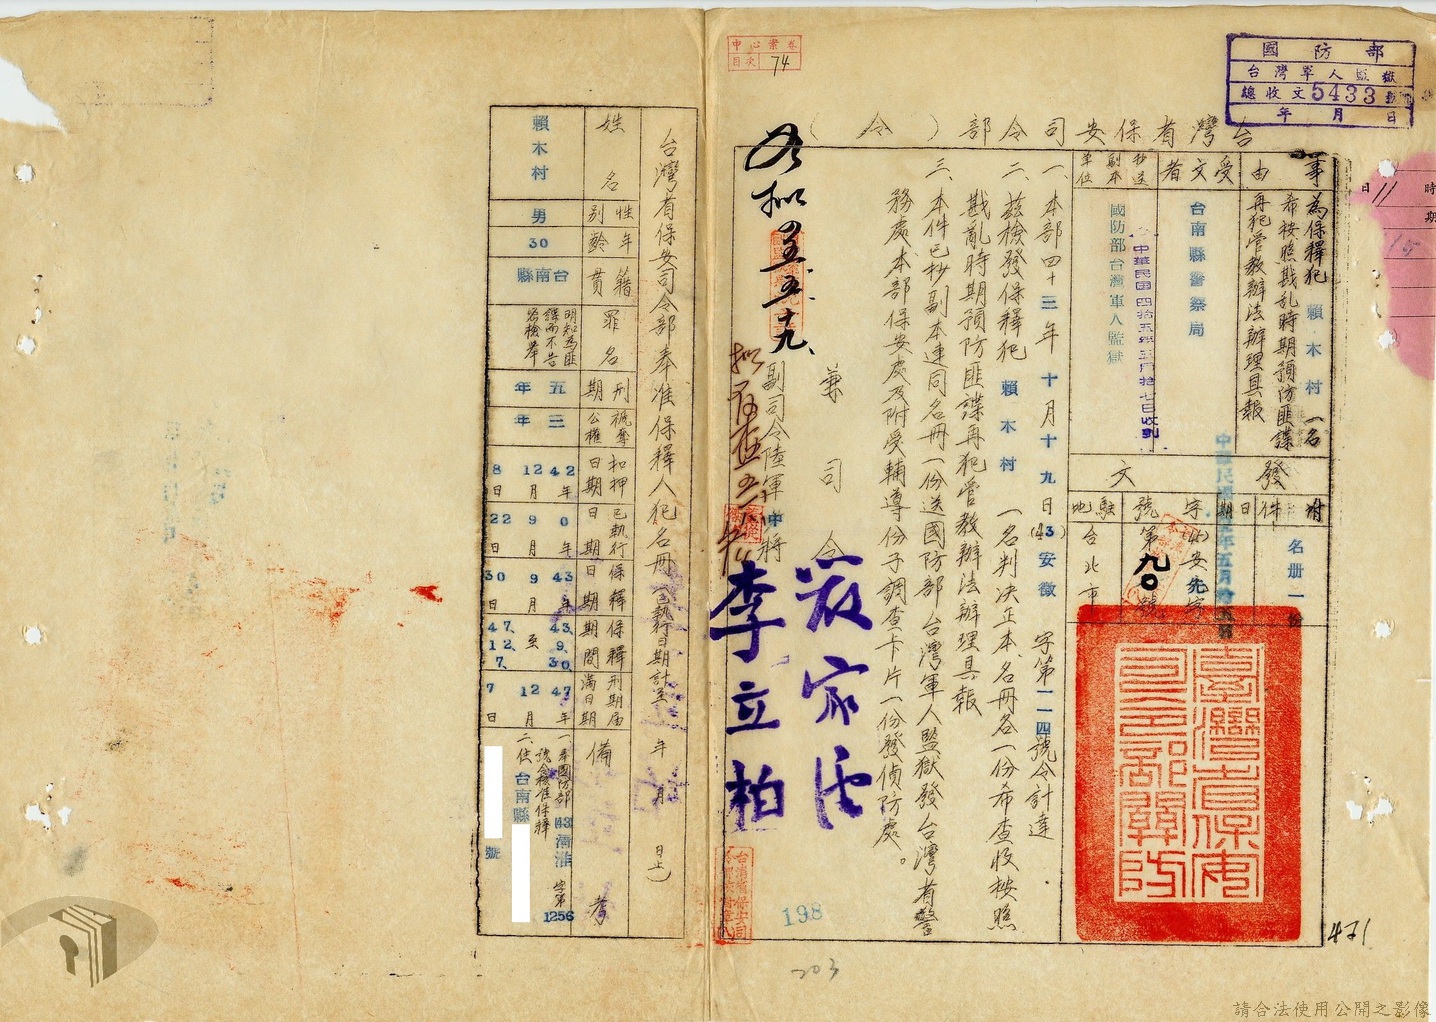 國防部
台灣軍人監獄
總收文5433號
年 月 日
卷案心中
目次 74
台灣省保安司令部（令）
事由
為保釋犯 賴木村 一名
希按照戡乱時期預防匪諜
再犯管教辦法辦理具報
受文者
台南縣警察局
抄送副本單位
國防部台灣軍人監獄
中華民國四拾五年五月拾七日收到
發文
附件
名册一份
日期
中華民國 年五月
字號
安 字
第九〇號
駐地
台北市
一、本部四十三年十月十九日(43)安徵字第二一四號令計達
二、茲檢發保釋犯 賴木村 一名判决正本、名冊各一份希查收按照
戡亂時期預防匪諜再犯管教辦法辦理具報
三、本件已抄副本連同名冊一份送國防部台灣軍人監獄發台灣省警
務處本部保安處及附受輔導份子調查卡片一份發偵防處。
兼司令
副司令陸軍中將 李立柏
台灣省保安司
198
203
471
台灣省保安司令部奉准保釋人犯名冊（已執行日期計至 年 月 日止）
姓名 賴木村
性別 男
年齡 30
籍貫 台南縣
罪名 明知為匪諜而不告密檢舉
刑期 五年
褫奪公權 三年
扣押日期 42年12月8日
已執行日期 0年9月22日
保釋日期 43年9月30日
保釋期間 43、9、30至47、12、7、
刑期屆滿日期 47年12月7日
備考
一、奉國防部(43)清淮字第1256
號令核准保釋
二、住台南縣 號
日 11
時期
15
請合法使用公開之影像